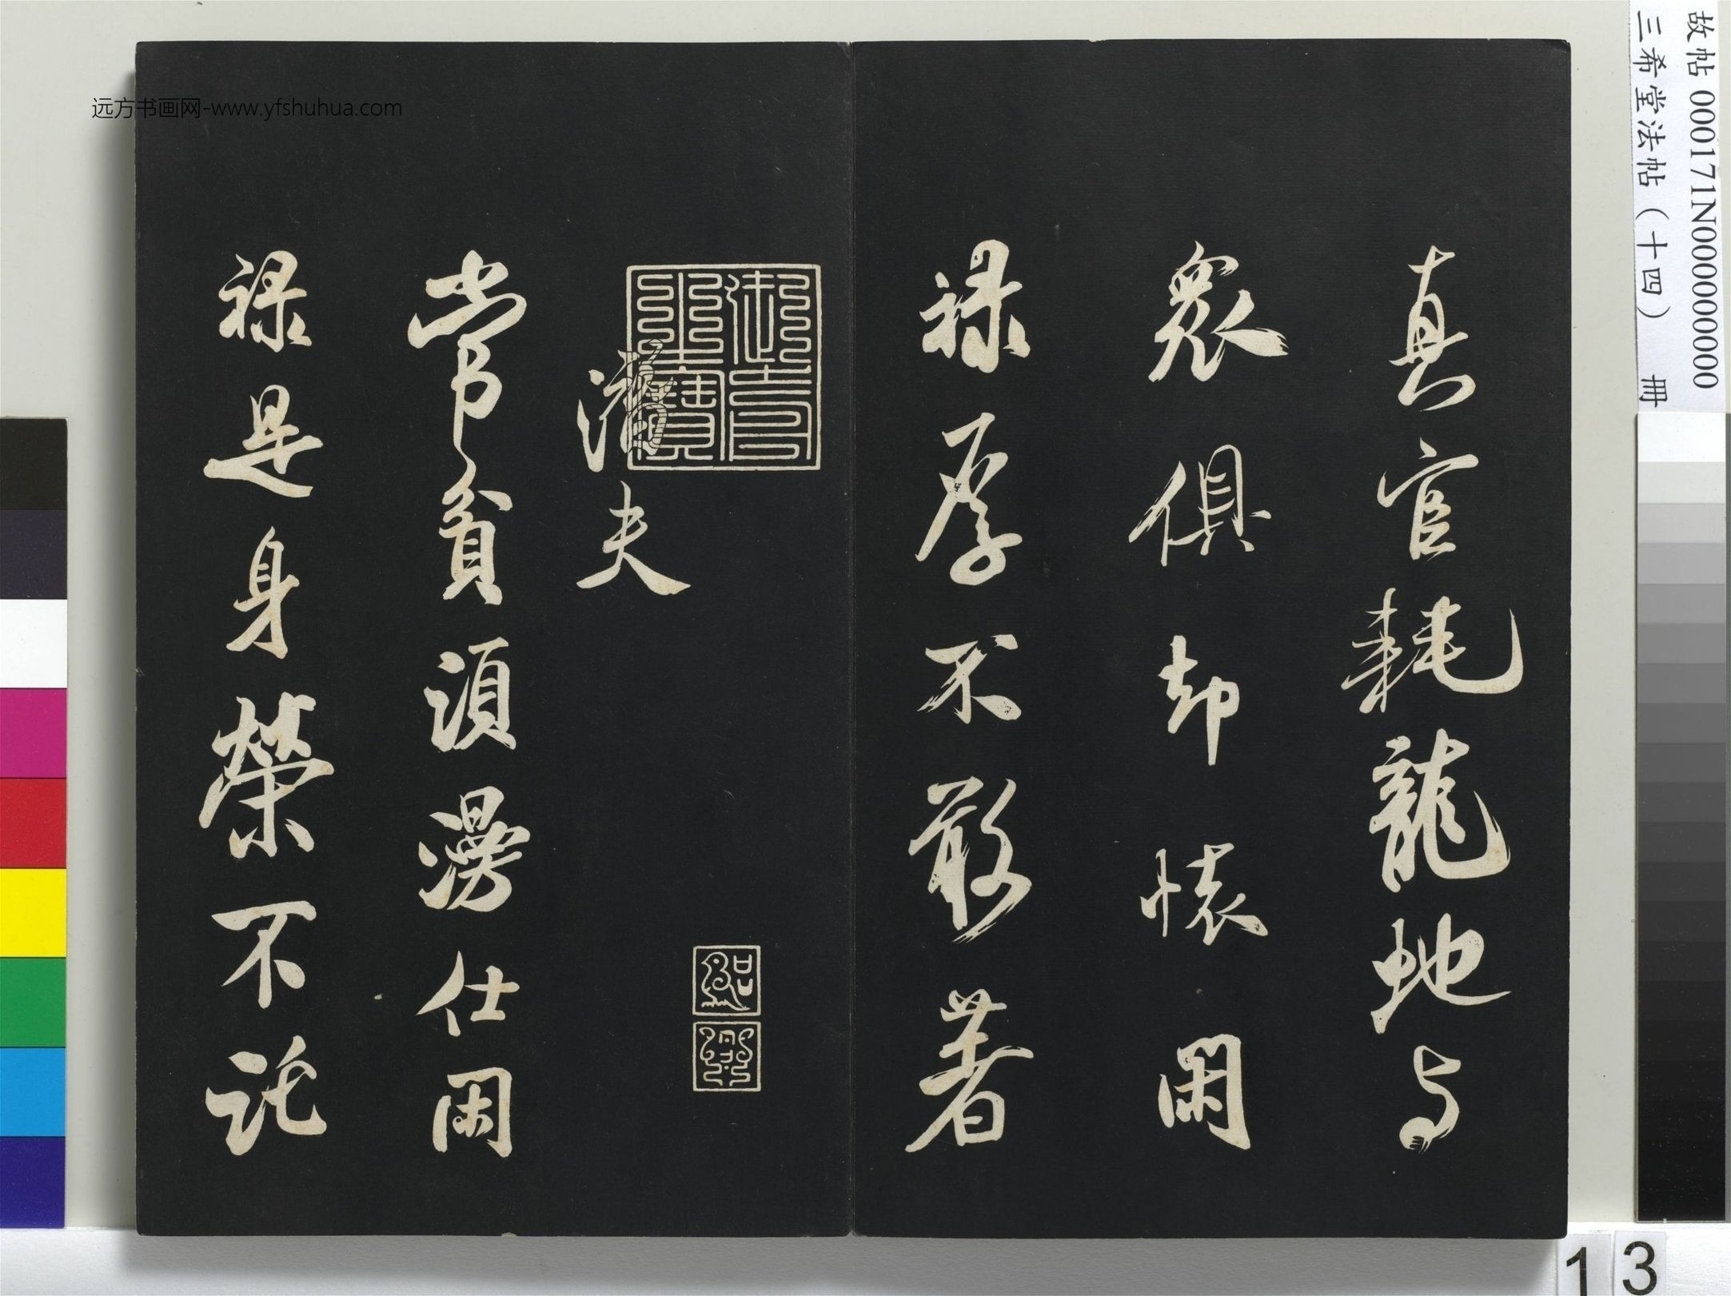 真官耗龍蛇与
衆俱却懷閑
禄厚不敢著
潛夫
紹
興
常貧須漫仕閑
禄是身榮不託
远方书画网-www.yfshuhua.com
故帖 000171N000000000
三希堂法帖（十四） 冊
13